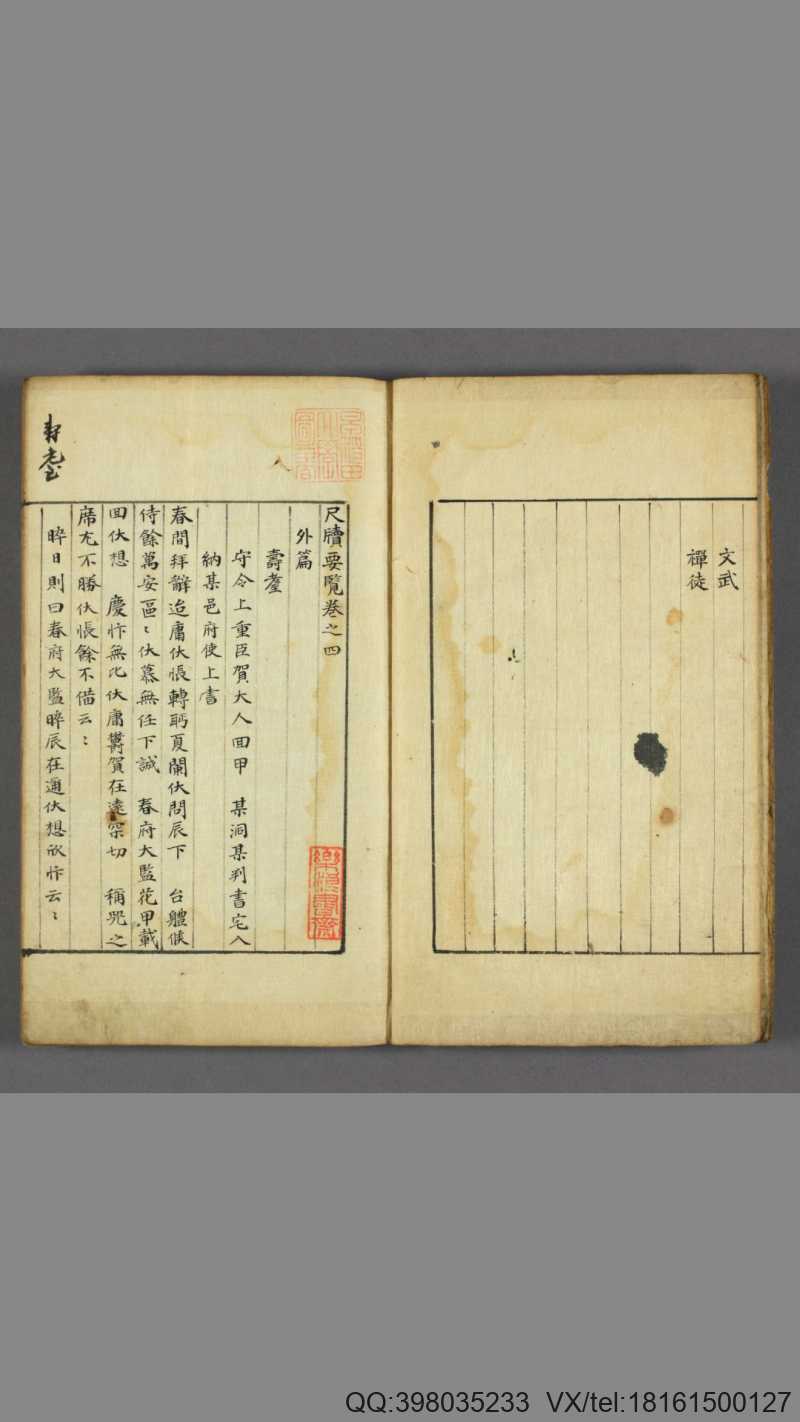 文武
禪徒
尺牘要覽卷之四
外篇
壽耋
守令上重臣賀大人回甲 某洞某判書宅入
納某邑府使上書
春間拜辭迨庸伏悵轉眄夏闌伏問辰下 台體候
侍餘萬安區〻伏慕無任下誠 春府大監花甲載
回伏想 慶忭無比伏庸馨賀在遠深切 稱兕之
席尤不勝伏悵餘不備云〻
晬日則曰春府大監晬辰在邇伏想欣忭云〻
壽耋
樂浪書齋
QQ:398035233 VX/tel:18161500127